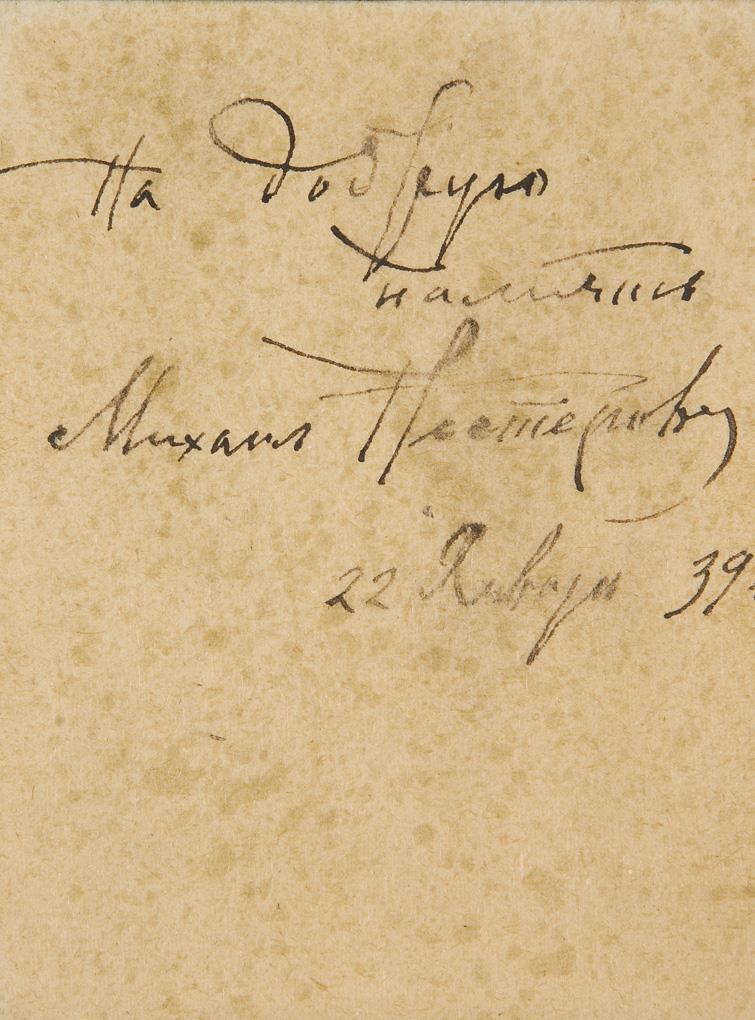 На добрую
память
Михаил Нестеровъ
22 Января 39